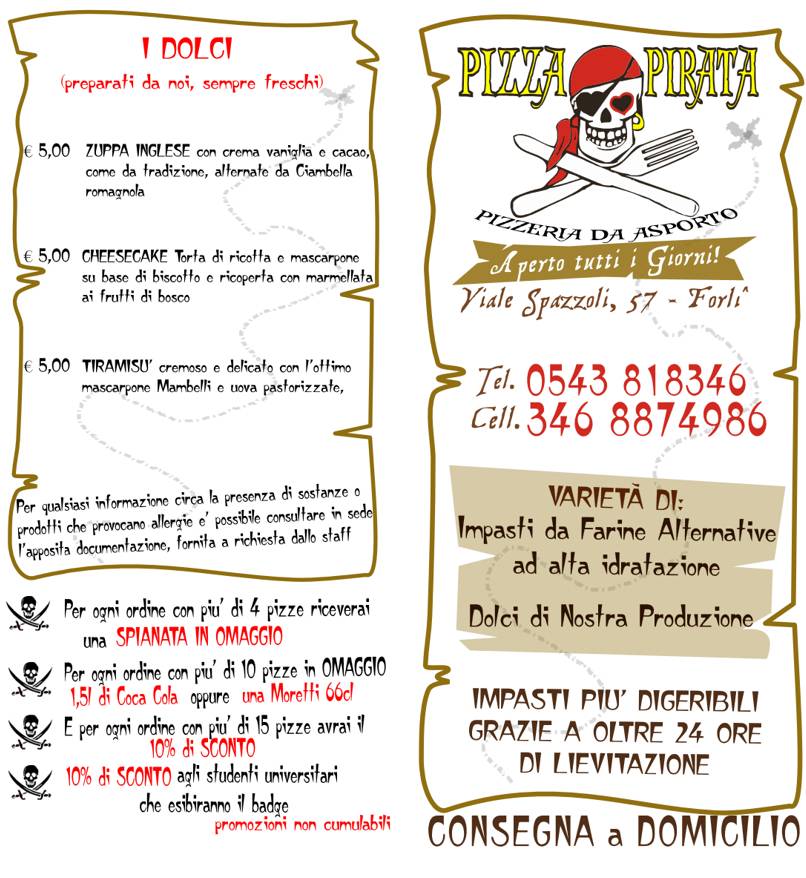 I DOLCI
(preparati da noi, sempre freschi)
€ 5,00 ZUPPA INGLESE con crema vaniglia e cacao,
come da tradizione, alternate da Ciambella
romagnola
€ 5,00 CHEESECAKE Torta di ricotta e mascarpone
su base di biscotto e ricoperta con marmellata
ai frutti di bosco
€ 5,00 TIRAMISU' cremoso e delicato con l'ottimo
mascarpone Mambelli e uova pastorizzate,
Per qualsiasi informazione circa la presenza di sostanze o
prodotti che provocano allergie e' possibile consultare in sede
l'apposita documentazione, fornita a richiesta dallo staff
Per ogni ordine con piu' di 4 pizze riceverai
una SPIANATA IN OMAGGIO
Per ogni ordine con piu' di 10 pizze in OMAGGIO
1,5l di Coca Cola oppure una Moretti 66cl
E per ogni ordine con piu' di 15 pizze avrai il
10% di SCONTO
10% di SCONTO agli studenti universitari
che esibiranno il badge
promozioni non cumulabili
PIZZA PIRATA
PIZZERIA DA ASPORTO
Aperto tutti i Giorni!
Viale Spazzoli, 57 - Forlì
Tel. 0543 818346
Cell. 346 8874986
VARIETÀ DI:
Impasti da Farine Alternative
ad alta idratazione
Dolci di Nostra Produzione
IMPASTI PIU' DIGERIBILI
GRAZIE A OLTRE 24 ORE
DI LIEVITAZIONE
CONSEGNA a DOMICILIO